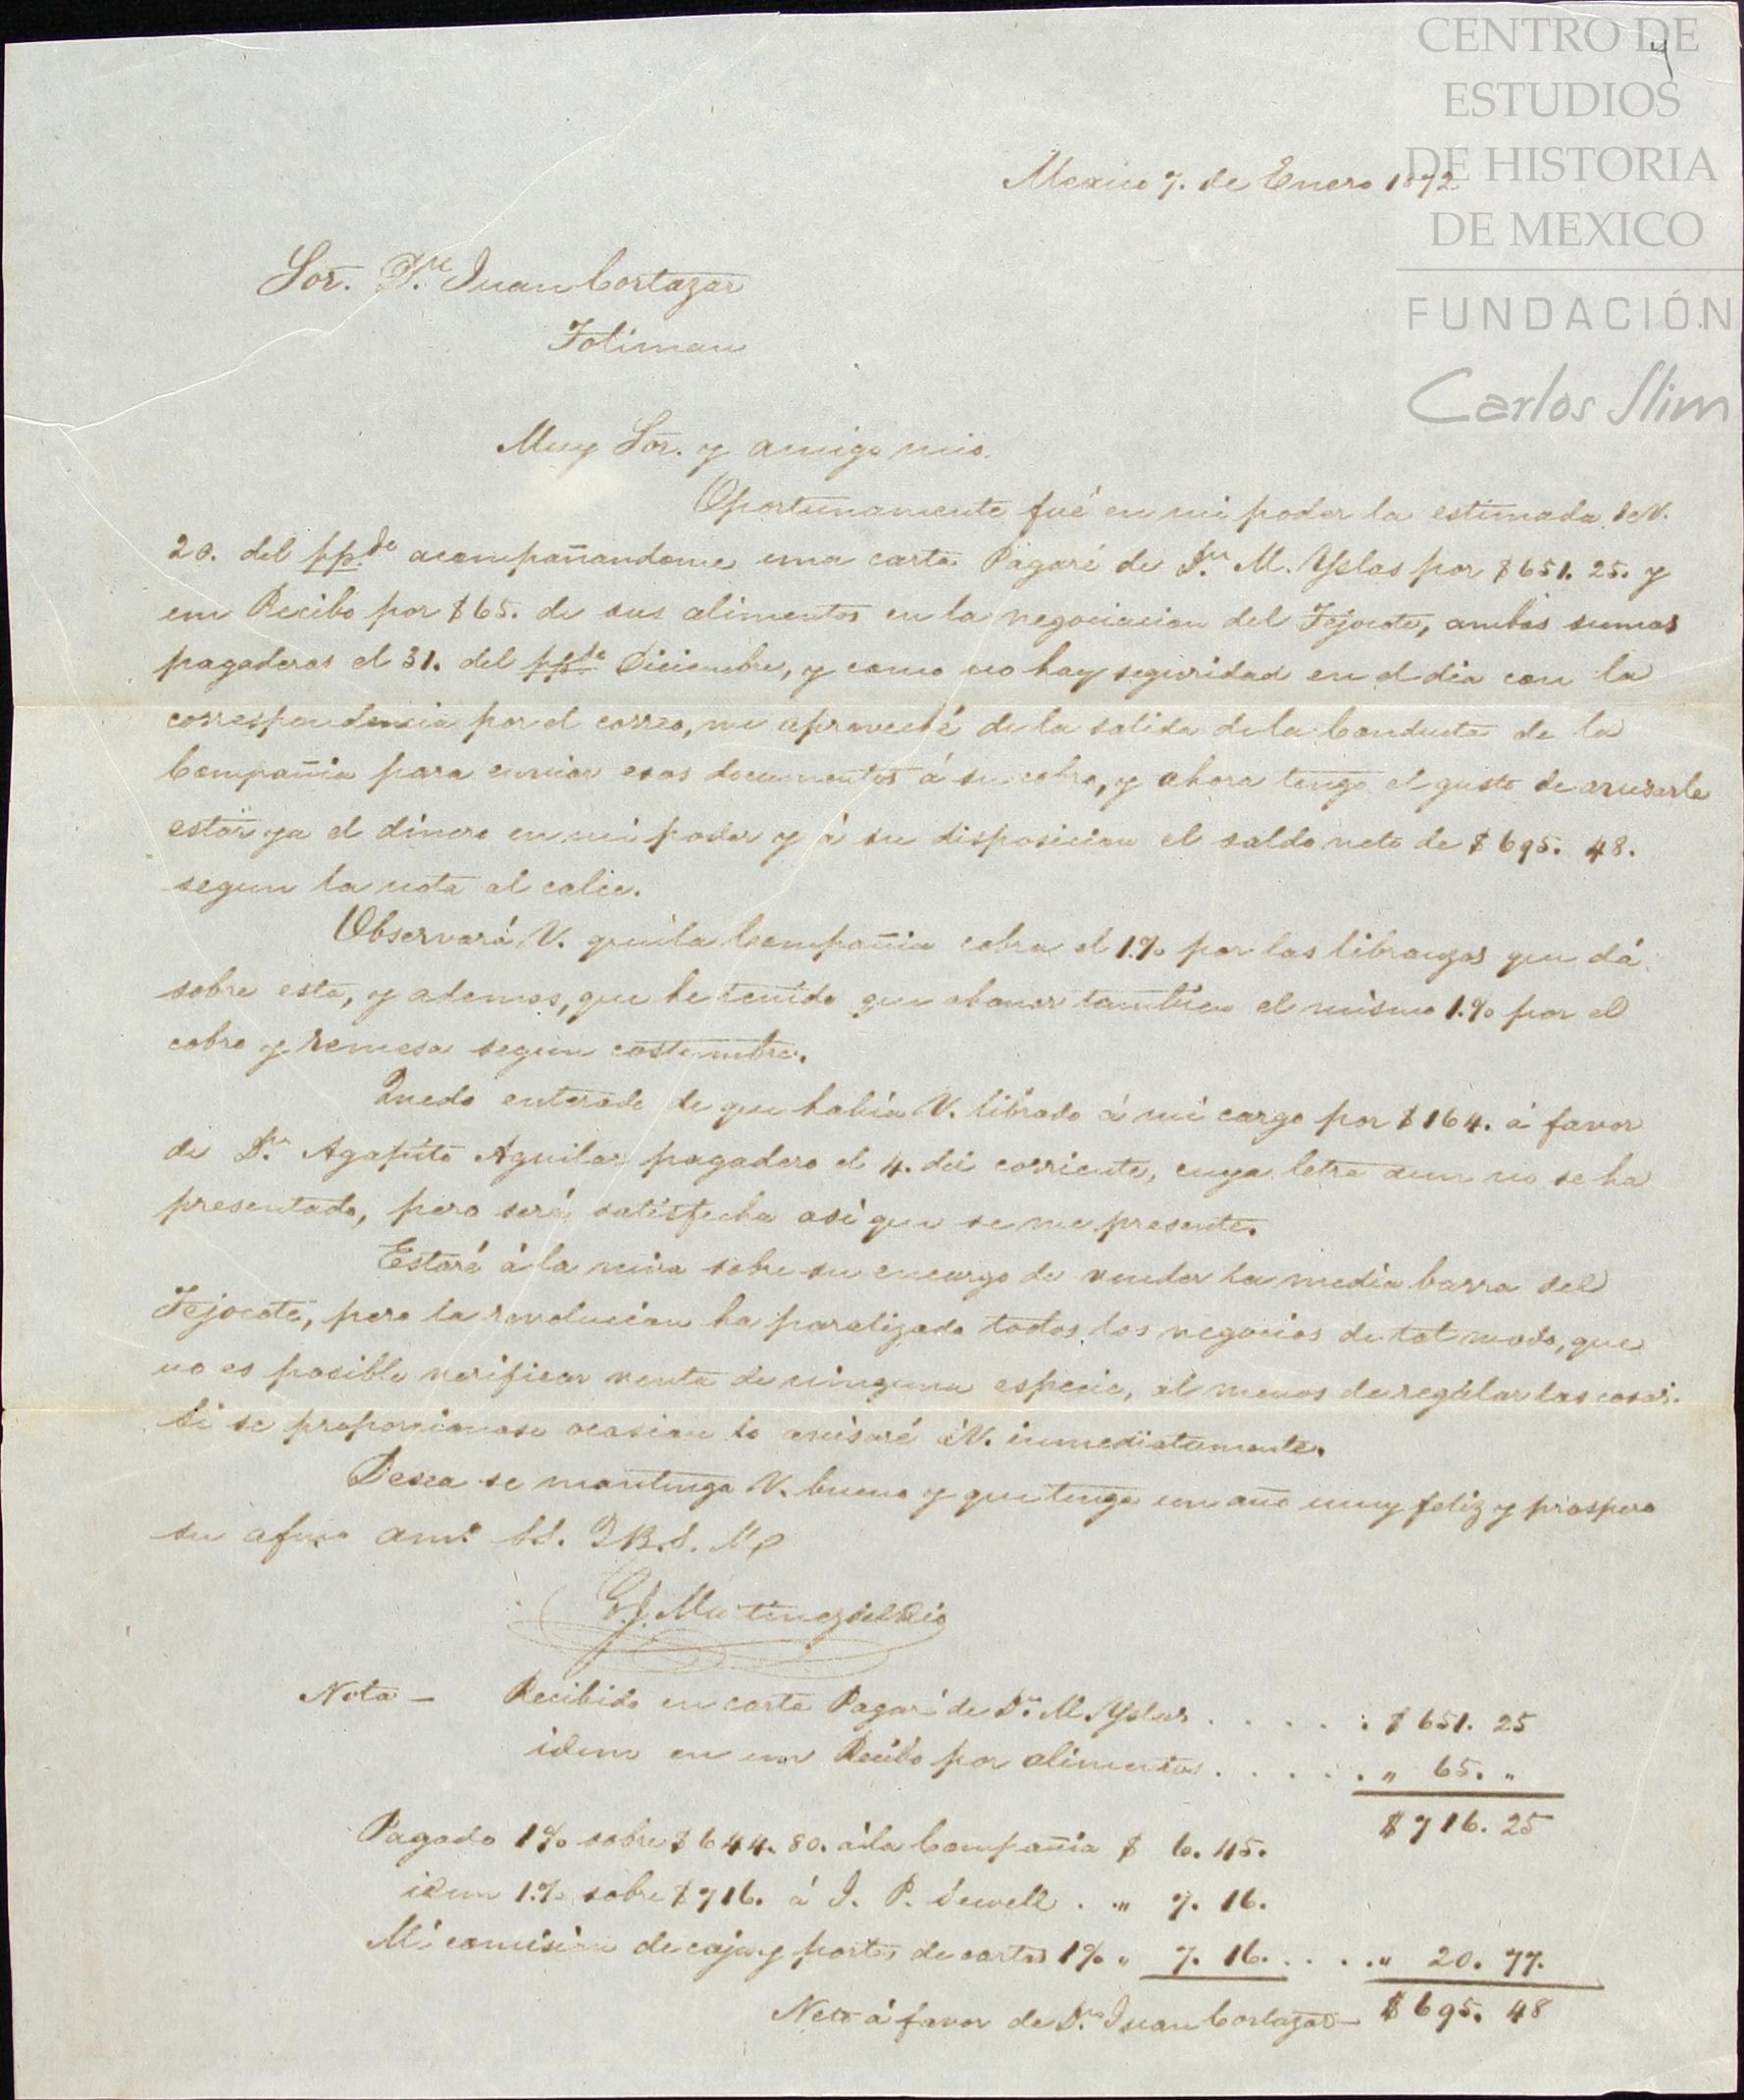 CENTRO DE
ESTUDIOS
DE HISTORIA
DE MEXICO
FUNDACIÓN
Carlos Slim
Mexico 7. de Enero 1872.
Sor. Dn. Juan Cortazar
Toliman
Muy Sor. y amigo mio.
Oportunamente fué en mi poder la estimada de V.
20. del pp.do acompañandome una carta Pagaré de Dn. M. Yslas por $651. 25. y
un Recibo por $65. de sus alimentos en la negociacion del Tejocote, ambas sumas
pagaderas el 31. del pp.do Diciembre, y como no hay seguridad en el dia con la
correspondencia por el correo, me aproveché de la salida de la Conducta de la
Compañia para enviar esos documentos á su cobro, y ahora tengo el gusto de avisarle
estar ya el dinero en mi poder y á su disposicion el saldo neto de $695. 48.
segun la nota al calce.
Observará V. que la Compañia cobra el 1% por las libranzas que dá
sobre esta, y ademas, que he tenido que abonar tambien el mismo 1.% por el
cobro y remesa segun costumbre.
Quedo enterado de que habia V. librado á mi cargo por $164. á favor
de Dn. Agapito Aguilar pagadero el 4. del corriente, cuya letra aun no se ha
presentado, pero será satisfecha asi que se me presente.
Estaré á la mira sobre su encargo de vender la media barra del
Tejocote, pero la revolucion ha paralizado todos los negocios de tal modo, que
no es posible verificar venta de ninguna especie, al menos de reglar las cosas.
Si se proporcionase ocasion lo avisaré á V. inmediatamente.
Desea se mantenga V. bueno y que tenga un año muy feliz y prospero
su afmo am.o SS. Q B. S. M
G. J. Martinez del Rio
Nota — Recibido en carta Pagaré de Dn. M. Yslas . . . . . : $651. 25
idem en un Recibo por alimentos . . . . . . „ 65. „
$716. 25
Pagado 1% sobre $644. 80. á la Compañia $ 6. 45.
idem 1.% sobre $716. á J. P. Sewell . „ 7. 16.
Mi comision de caja y portes de cartas 1% „ 7. 16. . . . . „ 20. 77.
Neto á favor de Dn. Juan Cortazar — $695. 48